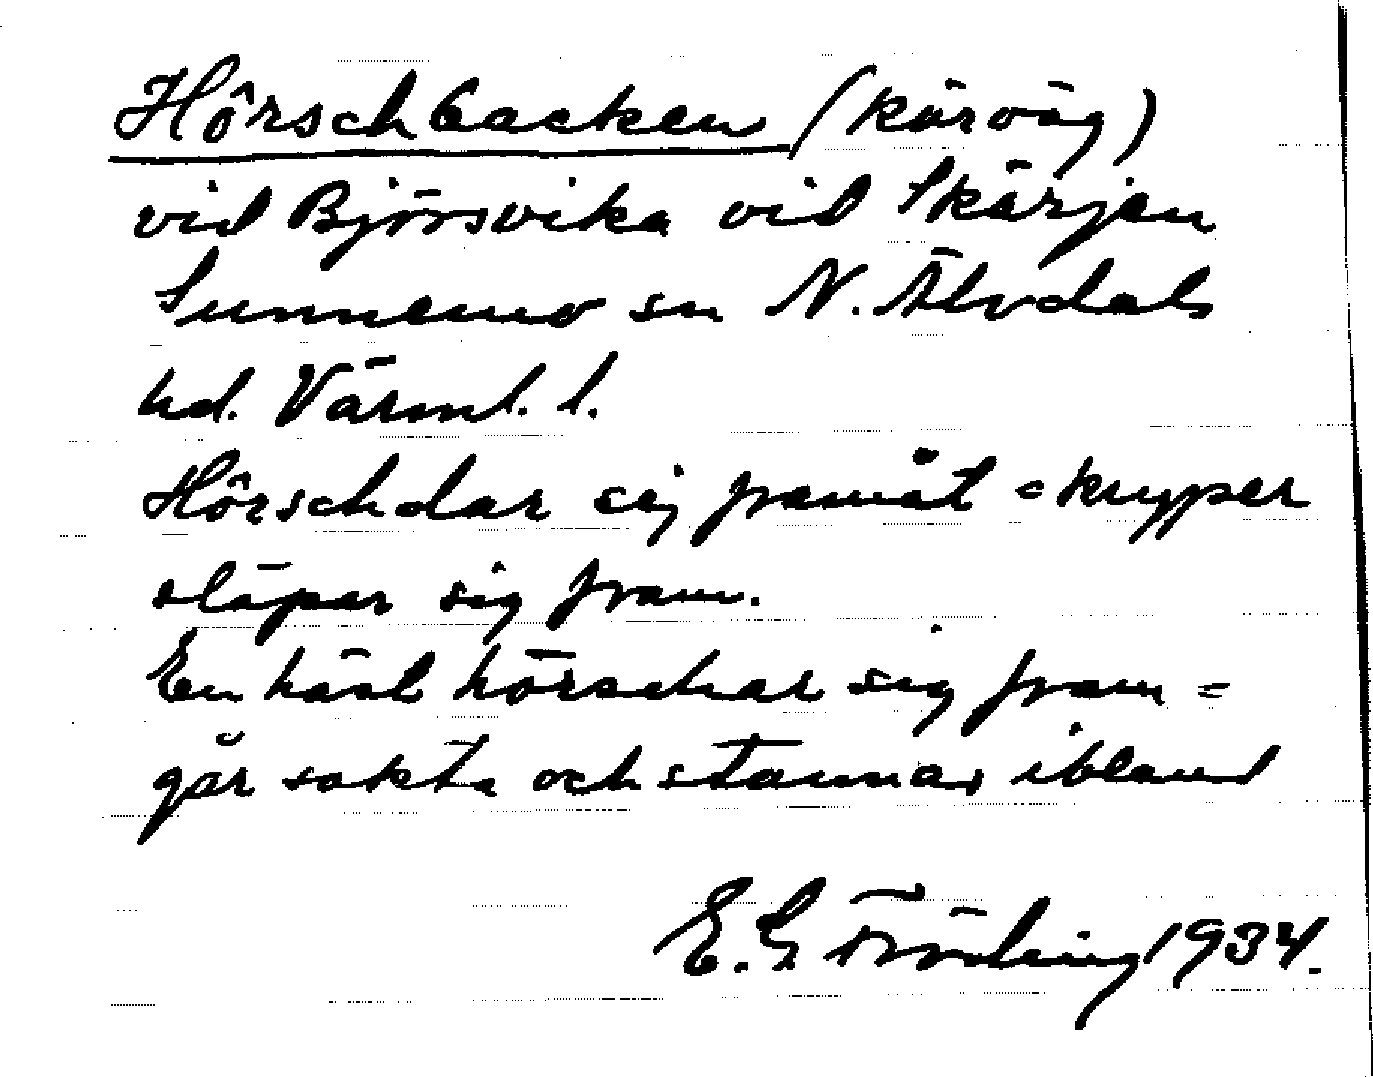 Hôrschbacken (körväg)
vid Björsvika vid Skärjen
Sunnemo sn N. Älvdals
hd. Värml. l.
Hôrschdar sig framåt = kryper
släpar sig fram.
En häst hörschar sig fram =
går sakta och stannar ibland
E. G. Fröding 1934.